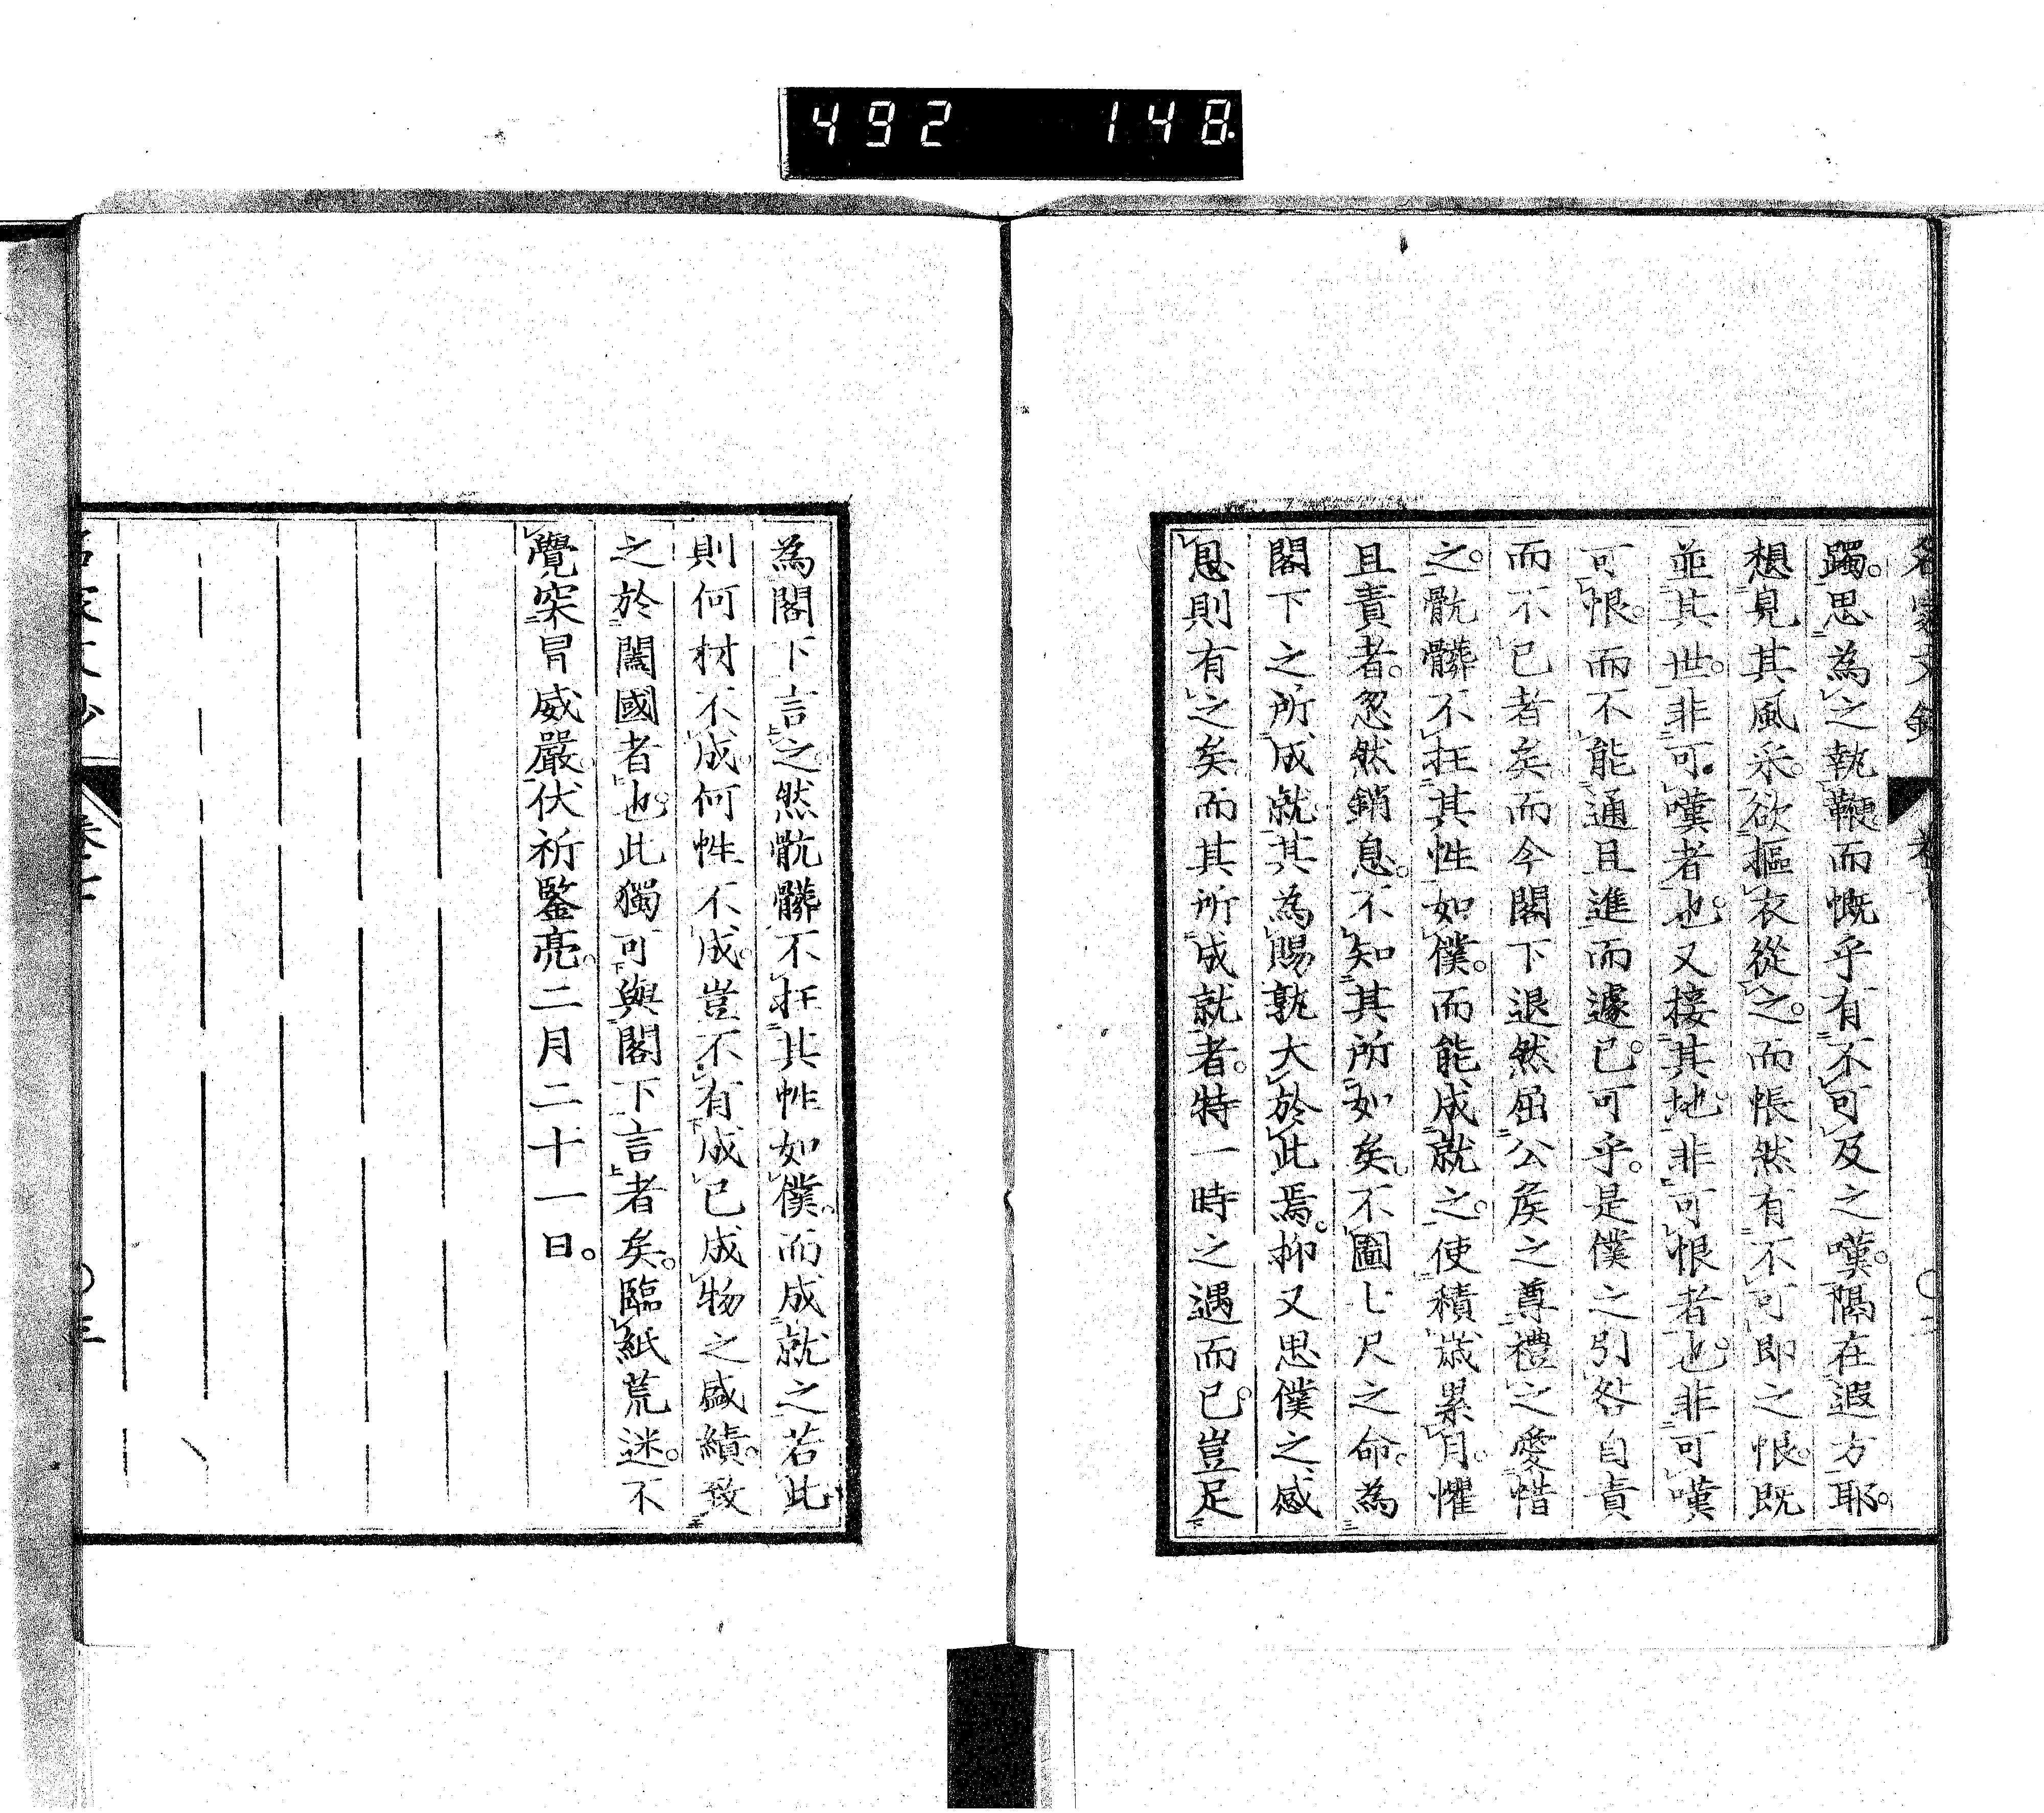 492 148
躅。思為之執鞭而慨乎有不可及之嘆。隔在遐方耶。
想見其風采。欲摳衣從之。而悵然有不可即之恨。既
並其世。非可嘆者也。又接其地。非可恨者也。非可嘆
可恨。而不能通且進而遽已。可乎。是僕之引咎自責
而不已者矣而今閣下退然屈公矦之尊禮之愛惜
之。骯髒不抂其性如僕。而能成就之。使積歲累月。懼
且責者。忽然銷息。不知其所如矣。不圖七尺之命。為
閣下之所成就。其為賜孰大於此焉。抑又思僕之感
恩則有之矣而其所成就者。特一時之遇而已。豈足
為閣下言之。然骯髒不抂其性如僕。而成就之若此
則何材不成。何性不成。豈不有成已成物之盛績。致
之於闔國者也。此獨可與閣下言者矣。臨紙荒迷。不
覺突冒威嚴。伏祈鑒亮。二月二十一日。